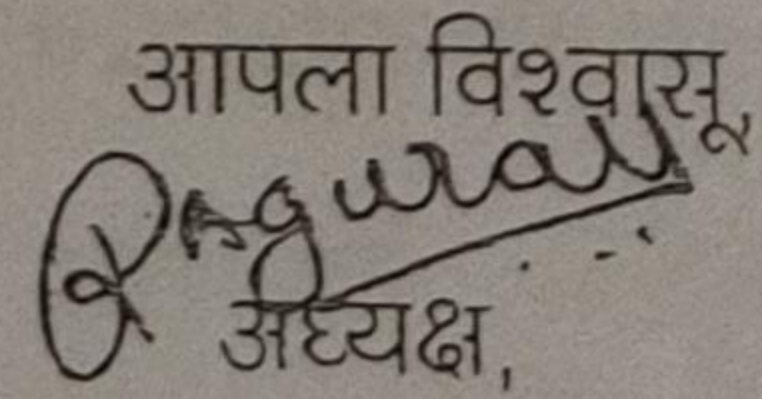 आपला विश्वासू,
अध्यक्ष,